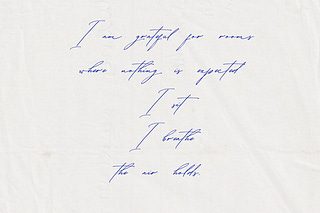 I am grateful for rooms
where nothing is expected
I sit
I breathe
the air holds.